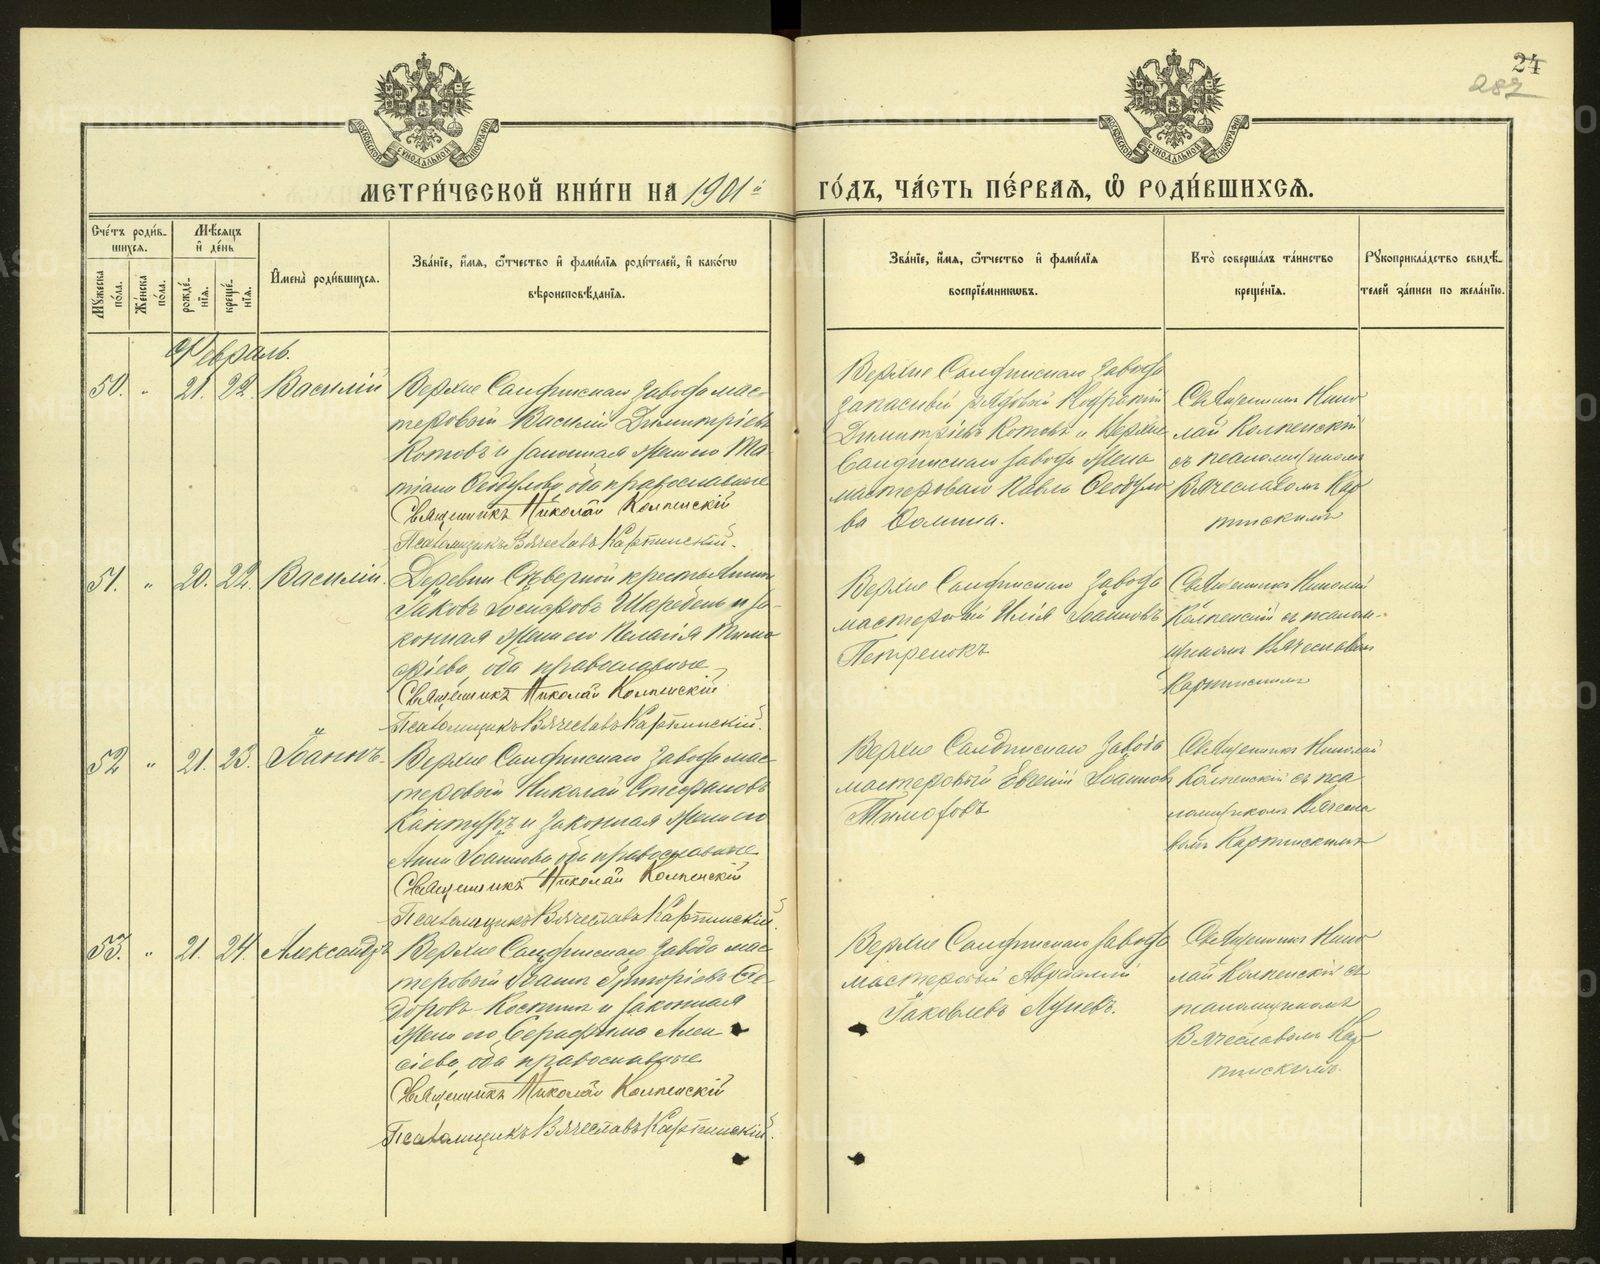 24
287
МОСКОВСКОЙ СѴНОДАЛЬНОЙ ТИПОГРАФІИ
МОСКОВСКОЙ СѴНОДАЛЬНОЙ ТИПОГРАФІИ
МЕТРИ́ЧЕСКОЙ КНИ́ГИ НА 1901й ГО́ДЪ, ЧА́СТЬ ПЕ́РВАѦ, Ѡ҆ РОДИ́ВШИХСѦ.
Сче́тъ роди́в-
шихсѧ.
Мꙋ́жеска по́ла.
Же́нска по́ла.
Мѣ́сѧцъ
и҆ де́нь
рожде́-
нїѧ.
креще́-
нїѧ.
И҆мена̀ роди́вшихсѧ.
Зва́нїе, и҆́мѧ, ѻ҆́тчество и҆ фами́лїѧ роди́телей, и҆ како́гѡ
вѣроисповѣ́данїѧ.
Зва́нїе, и҆́мѧ, ѻ҆́тчество и҆ фами́лїѧ
воспрїе́мникѡвъ.
Кто̀ соверша́лъ та́инство
креще́нїѧ.
Рꙋкоприкла́дство свидѣ́-
телей за́писи по жела́нїю.
Февраль.
50. " 21. 22. Василій
Верхне Салдинскаго Завода мас-
теровой Василій Димитріевъ
Котовъ и законная жена его Та-
тіана Ѳеодулова, оба православные
Священникъ Николай Колпенскій
Псаломщикъ Вячеславъ Карпинскій.
Верхне Салдинскаго Завода
запасный рядовый
Димитріевъ Котовъ и Верхне
Салдинскаго завода жена
мастероваго Павла Ѳеодуло
ва
Священникъ Нико
лай Колпенскій
съ псаломщикомъ
Вячеславомъ Кар
пинскимъ
51. " 20. 22. Василій.
Деревни Сѣверной крестьянин
Іаковъ и за-
конная жена его Пелагія Тимо
ѳеева, оба православные
Священникъ Николай Колпенскій
Псаломщикъ Вячеславъ Карпинскій.
Верхне Салдинскаго Завода
мастеровой Илія Іоанновъ
Петренокъ
Священникъ Николай
Колпенскій съ псалом-
щикомъ Вячеславомъ
Карпинскимъ
52 " 21. 23. Іоаннъ.
Верхне Салдинскаго Завода мас-
теровой Николай Стефановъ
Кантуръ и законная жена его
Анна Іоаннова, оба православные
Священникъ Николай Колпенскій
Псаломщикъ Вячеславъ Карпинскій.
Верхне Салдинскаго Завода
мастеровый Евгеній Іоаннов
Тимофовъ
Священникъ Николай
Колпенскій съ пса
ломщикомъ Вячесла
вомъ Карпинскимъ
53. " 21. 24. Александръ
Верхне Салдинскаго Завода мас-
теровой Іоаннъ Григоріевъ Ѳе-
доровъ Костинъ и законная
жена его Серафима Алек
сіева, оба православные
Священникъ Николай Колпенскій
Псаломщикъ Вячеславъ Карпинскій.
Верхне Салдинскаго завода
мастеровый
Іаковлевъ Лучевъ.
Священникъ Нико
лай Колпенскій съ
псаломщикомъ
Вячеславомъ Кар
пинскимъ.
METRIKI.GASO-URAL.RU